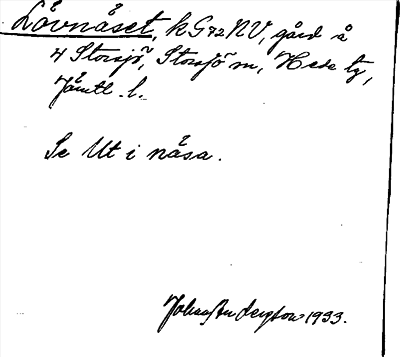 Lövnäset, k G72NV, gård å
4 Storsjö, Storsjö sn, Hede tg,
Jämtl. l.
Se Ut i nåsa.
Johan Anderston 1933.